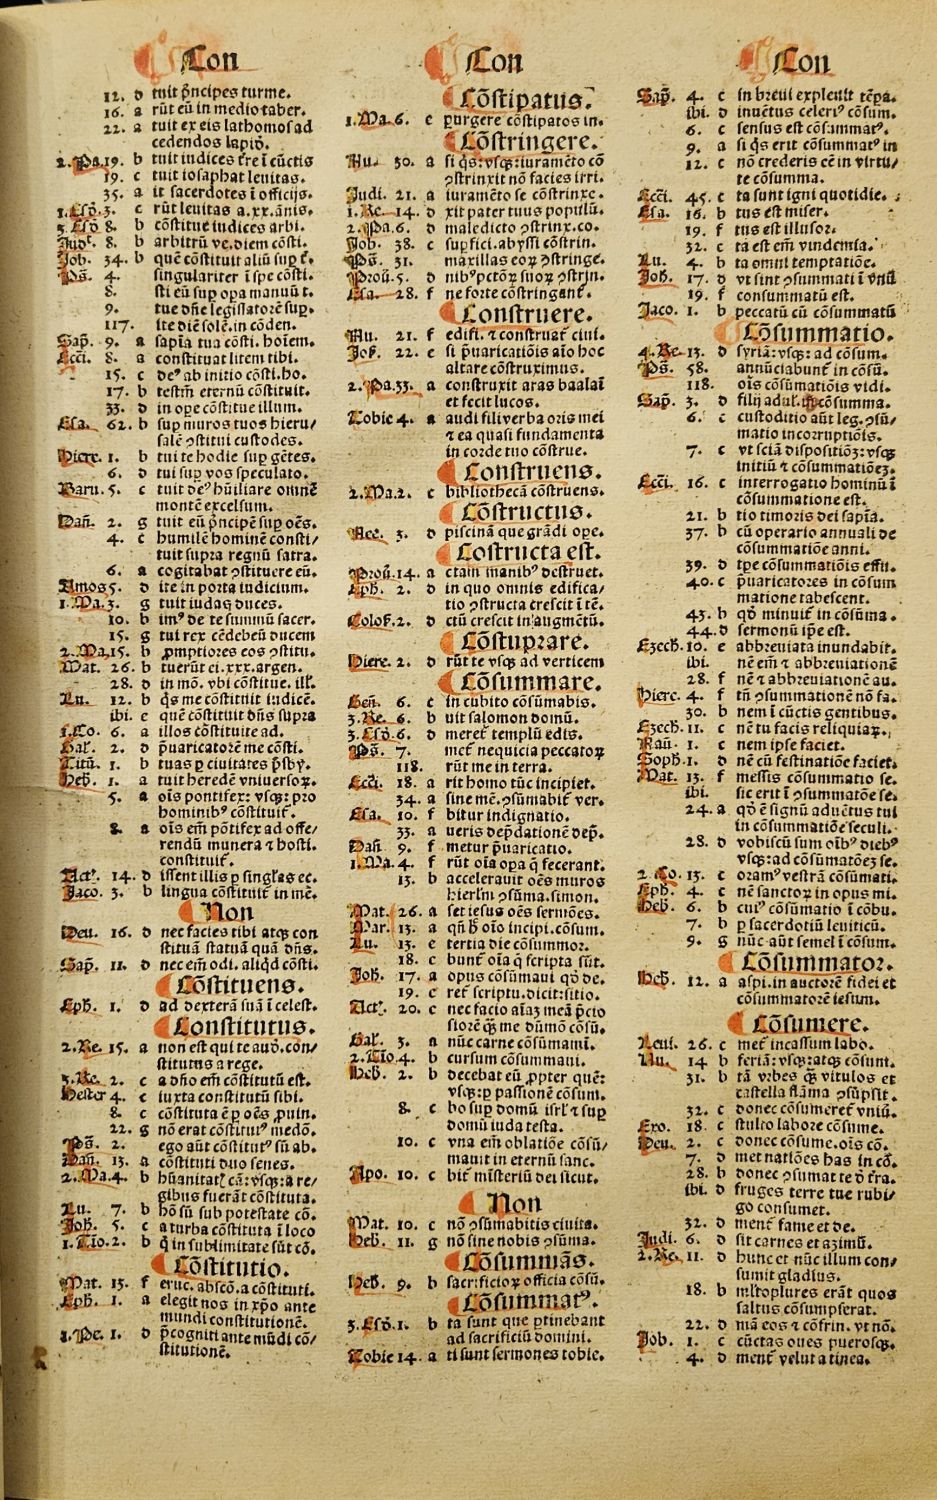 Con
12. d tuit p̄ncipes turme.
16. a rūt eū in medio taber.
22. a tuit ex eis lathomos ad
cedendos lapid.
2. Pa. 19. b tuit iudices t̄re ī cūctis
19. c tuit iosaphat leuitas.
35. a it sacerdotes ī officijs.
1. Esd. 3. c rūt leuitas a .xx. ānis.
3. Esd 8. b cōstitue iudices arbi.
8. b arbitrū ve. diem cōsti.
Job. 34. b quē cōstituit aliū sup t̄.
Ps. 4. singulariter ī spe cōsti.
8. sti eū sup opa manuū t.
9. tue dn̄e legislatorē sup.
117. ite diē solē. in cōden.
Sap. 9. a sapīa tua cōsti. hoīem.
Ecci. 8. a constituat litem tibi.
15. c deꝰ ab initio cōsti. ho.
17. b testm̄ eternū cōstituit.
33. d in ope cōstitue illum.
Esa. 62. b sup muros tuos hieru/
salē ꝯstitui custodes.
Hiere. 1. b tui te hodie sup gētes.
6. d tui sup vos speculato.
Baru. 5. c tuit deꝰ hūiliare omnē
montē excelsum.
Dan̄. 2. g tuit eū p̄ncipē sup oēs.
4. c humilē hominē consti/
tuit supra regnū
6. a cogitabat ꝯstituere eū.
Amos 5. d ite in porta iudicium.
1. Ma. 3. g tuit iudas duces.
10. b imꝰ de te summū sacer.
15. g tui rex cēdebeū ducem
2. Ma. 15. b ꝓmptiores eos ꝯstitu.
Mat. 26. b tuerūt ei .xxx. argen.
28. d in mō. vbi cōstitue. ill̄.
Lu. 12. b qs me constituit iudicē.
ibi. e quē cōstituit dn̄s supra
1. Co. 6. a illos cōstituite ad.
Gal̄. 2. d p̄uaricatorē me cōsti.
Titū. 1. b tuas p ciuitates p̄sby.
Heb. 1. a tuit heredē vniuersoꝝ.
5. a oīs pontifex: vsqꝫ: pro
hominibꝰ cōstituit̄.
8. a oīs em̄ pōtifex ad offe/
rendū munera ⁊ hosti.
constituit̄.
Act. 14. d issent illis p singl̄as ec.
Jaco. 3. b lingua cōstituit̄ in mē.
Non
Deu. 16. d nec facies tibi atqꝫ con
stituā statuā quā dn̄s.
Sap. 11. d nec em̄ odi. aliqd cōsti.
Cōstituens.
Eph. 1. d ad dexterā suā ī celest.
Constitutus.
2. Re. 15. a non est qui te aud. con/
stitutus a rege.
3. Re. 2. c a dn̄o em̄ cōstitutū est.
Hester 4. c iuxta constitutū sibi.
8. c cōstituta ē p oēs ꝓuin.
22. g nō erat cōstitutꝰ medō.
Ps. 2. ego aūt cōstitutꝰ sū ab.
Dan̄. 13. a cōstituti duo senes.
2. Ma. 4. b hūanitat̄ cā: vsqꝫ: a re/
gibus fuerāt cōstituta.
Lu. 7. b hō sū sub potestate cō.
Joh. 5. c a turba cōstituta ī loco
1. Tio. 2. b q̄ in sublimitate sūt cō.
Cōstitutio.
Mat. 13. f eruc. abscō. a cōstituti.
Eph. 1. a elegit nos in xp̄o ante
mundi constitutionē.
1. Pe. 1. d p̄cogniti ante mūdi cō/
stitutionē.
Con
Cōstipatus.
1. Ma. 6. c purgere cōstipatos in.
Cōstringere.
Nu. 30. a si qs: vsqꝫ: iuramēto cō
ꝯstrinxit nō facies irri.
Judi. 21. a iuramēto se cōstrinxe.
1. Re. 14. d xit pater tuus populū.
2. Pa. 6. d maledicto ꝯstrinx. co.
Job. 38. c supfici. abyssi cōstrin.
Ps. 31. maxillas eoꝝ ꝯstringe.
Prou. 5. d nibꝰ pctōꝝ suoꝝ ꝯstrin.
Esa. 28. f ne forte cōstringant̄.
Construere.
Nu. 21. f edifi. ⁊ construat̄ ciui.
Jos. 22. e si p̄uaricatiōis aīo hoc
altare cōstruximus.
2. Pa. 33. a construxit aras baalaī
et fecit lucos.
Tobie 4. a audi fili verba oris mei
⁊ ea quasi fundamenta
in corde tuo cōstrue.
Construens.
2. Ma. 2. c bibliothecā cōstruens.
Cōstructus.
Nee. 3. d piscinā que grādi ope.
Cōstructa est.
Prou. 14. a ctam manibꝰ destruet.
Eph. 2. d in quo omnis edifica/
tio ꝯstructa crescit ī tē.
Colos. 2. d ctū crescit in augmētū.
Cōstuprare.
Hiere. 2. d rūt te vsqꝫ ad verticem
Cōsummare.
Gen̄. 6. c in cubito cōsūmabis.
3. Re. 6. b uit salomon domū.
3. Esd. 6. d meret̄ templū edis.
Ps. 7. met̄ nequicia peccatoꝝ
118. rūt me in terra.
Ecci. 18. a rit homo tūc incipiet.
34. a sine mē. ꝯsūmabit̄ ver.
Esa. 10. f bitur indignatio.
33. a ueris dep̄dationē dep̄.
Dan̄. 9. f metur p̄uaricatio.
1. Ma. 4. f rūt oīa opa q̄ fecerant.
13. b accelerauit oēs muros
hierl̄m ꝯsūma. simon.
Mat. 26. a set iesus oēs sermōes.
Mar. 13. a qn̄ h̄ oīo incipi. cōsum.
Lu. 13. e tertia die cōsummor.
18. c bunt̄ oīa q̄ scripta sūt.
Joh. 17. a opus cōsūmaui qd de.
19. c ret̄ scriptu. dicit: sitio.
Act. 20. c nec facio aīaꝫ meā p̄cio
siorē qꝫ me dūmō cōsū.
Gal. 3. a nūc carne cōsūmami.
2. Tio. 4. b cursum cōsummaui.
Heb. 2. b decebat eū ꝓpter quē:
vsqꝫ: p passionē cōsum.
8. c bo sup domū isrl̄ ⁊ sup
domū iuda testa.
10. c vna em̄ oblatiōe cōsū/
mauit in eternū sanc.
Apo. 10. c bit̄ misteriū dei sicut.
Non
Mat. 10. c nō ꝯsūmabitis ciuita.
Heb. 11. g nō sine nobis ꝯsūma.
Cōsummās.
Heb. 9. b sacrificioꝝ officia cōsū.
Cōsummatꝰ.
3. Esd. 1. b ta sunt que ptinebant
ad sacrificiū domini.
Tobie 14. a ti sunt sermones tobie.
Con
Sap. 4. c in breui expleuit tēpa.
ibi. d inuētus celeriꝰ cōsum.
6. c sensus est cōsummatꝰ.
9. a si qs erit cōsummatꝰ in
12. c nō crederis eē in virtu/
te cōsumma.
Ecci. 45. c ta sunt igni quotidie.
Esa. 16. b tus est miser.
19. f tus est illusor.
32. c ta est em̄ vindemia.
Lu. 4. b ta omni temptatiōe.
Joh. 17. d vt sint ꝯsummati ī vnū
19. f consummatū est.
Jaco. 1. b peccatū cū consummatū
Cōsummatio.
4. Re. 13. d syriā: vsqꝫ: ad cōsum.
Ps. 58. annūciabunt̄ in cōsū.
118. oīs cōsūmatiōis vidi.
Sap. 3. d filij adul. cōsumma.
6. c custoditio aūt leg. ꝯsū/
matio incorruptiōis.
7. c vt sciā dispositiōꝫ: vsqꝫ
initiū ⁊ cōsummatiōeꝫ.
Ecci. 16. c interrogatio hominū ī
cōsummatione est.
21. b tio timoris dei sapīa.
37. b cū operario annuali de
cōsummatiōe anni.
39. d tp̄e cōsummatiōis effū.
40. c p̄uaricatores in cōsum
matione tabescent.
43. b qd minuit̄ in cōsūma.
44. d sermonū ip̄e est.
Ezech. 10. e abbreuiata inundabit.
ibi. nē em̄ ⁊ abbreuiationē
28. f nē ⁊ abbreuiationē au.
Hiere. 4. f tn̄ ꝯsummationē nō fa.
30. b nem ī cūctis gentibus.
Ezech. 11. c nē tu facis reliquiaꝝ.
Naū. 1. c nem ipse faciet.
Soph. 1. d nē cū festinatiōe faciet.
Mat. 13. f messis cōsummatio se.
ibi. sic erit ī ꝯsummatōe se.
24. a qd ē signū aduētus tui
in cōsummatiōe seculi.
28. d vobiscū sum oībꝰ diebꝰ
vsqꝫ: ad cōsumatōeꝫ se.
2 Co. 13. c oramꝰ vestrā cōsūmati.
Eph. 4. c nē sanctoꝝ in opus mi.
Heb. 6. b cuiꝰ cōsūmatio ī cōbu.
7. b p sacerdotiū leuiticū.
9. g nūc aūt semel ī cōsum.
Cōsummator.
Heb. 12. a aspi. in auctorē fidei et
cōsummatorē iesum.
Cōsumere.
Leui. 26. c met̄ incassum labo.
Nu. 14 b feriā: vsqꝫ: atqꝫ cōsunt.
31. b tā vrbes qꝫ vitulos et
castella flāma ꝯsūpsit.
32. c donec cōsumeret̄ vniū.
Exo. 18. c stulto labore cōsume.
Deu. 2. c donec cōsume. oīs cō.
7. d met nationes has in cō.
28. b donec ꝯsumat te d t̄ra.
ibi. d fruges terre tue rubi/
go consumet.
32. d ment̄ fame et de.
Judi. 6. d sit carnes et azimū.
2. Re. 11. d hunc et nūc illum con/
sumit gladius.
18. b ml̄toplures erāt quos
saltus cōsumpserat.
22. d mā eos ⁊ cōfrin. vt nō.
Job. 1. c cūctas oues puerosqꝫ.
4. d ment̄ velut a tinea.